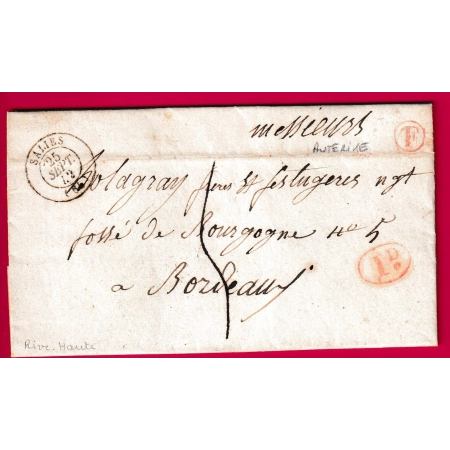 messieurs
F
AUTERIVE
SALIES
25
SEPT.
42
Solagray frères & festugeres ngt
fossé de Bourgogne No 5
a Bordeaux
5
1 D.
Rive-Haute